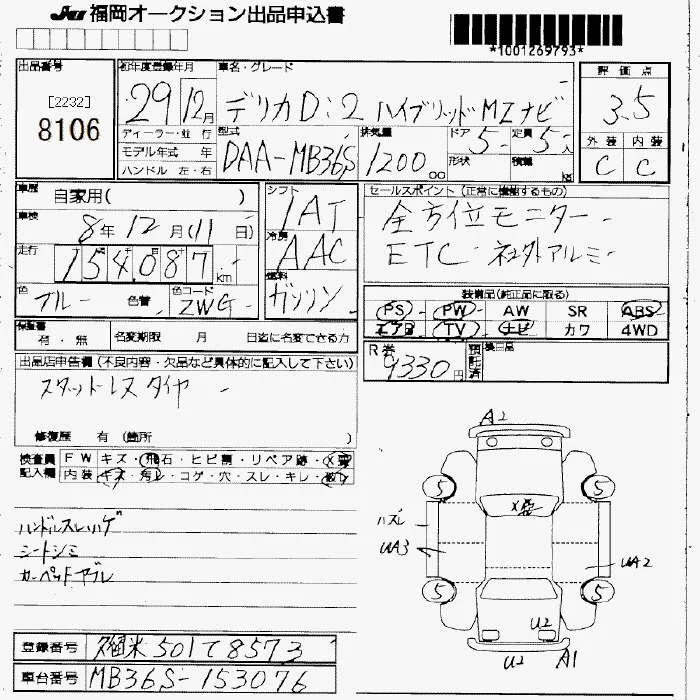 JU 福岡オークション出品申込書
*1001269793*
出品番号
[2232]
8106
初年度登録年月
29年12月
ディーラー・並行
モデル年式 年
ハンドル 左・右
車名・グレード
デリカD:2 ハイブリッドMZナビ
型式
DAA-MB36S
排気量
1200 cc
ドア 5
定員 5人
形状
積載 kg
評価点
3.5
外装 内装
C C
車歴 自家用( )
車検 8年12月(11日)
走行 154,087 km
色 ブルー 色替
色コード ZWG
シフト
IAT
冷房
AAC
燃料
ガソリン
セールスポイント(正常に機能するもの)
全方位モニター
ETC・社外アルミ
装備品(純正品に限る)
PS PW AW SR ABS
エアB TV ナビ カワ 4WD
保証書
有・無
名変期限 月 日迄に名変できる方
R券
9330円
預託済
後日品
出品店申告欄(不良内容・欠品など具体的に記入して下さい)
スタットレスタイヤ
修復歴 有 (箇所 )
検査員記入欄
FW キズ・飛石・ヒビ割・リペア跡・X要
内装 キズ・汚レ・コゲ・穴・スレ・キレ・破レ
ハンドルスレハゲ
シートシミ
カーペットヤブレ
A2
5 5
X要
ハズレ
UA3
UA2
5 5
U2
U2 A1
登録番号 久留米501て8573
車台番号 MB36S-153076